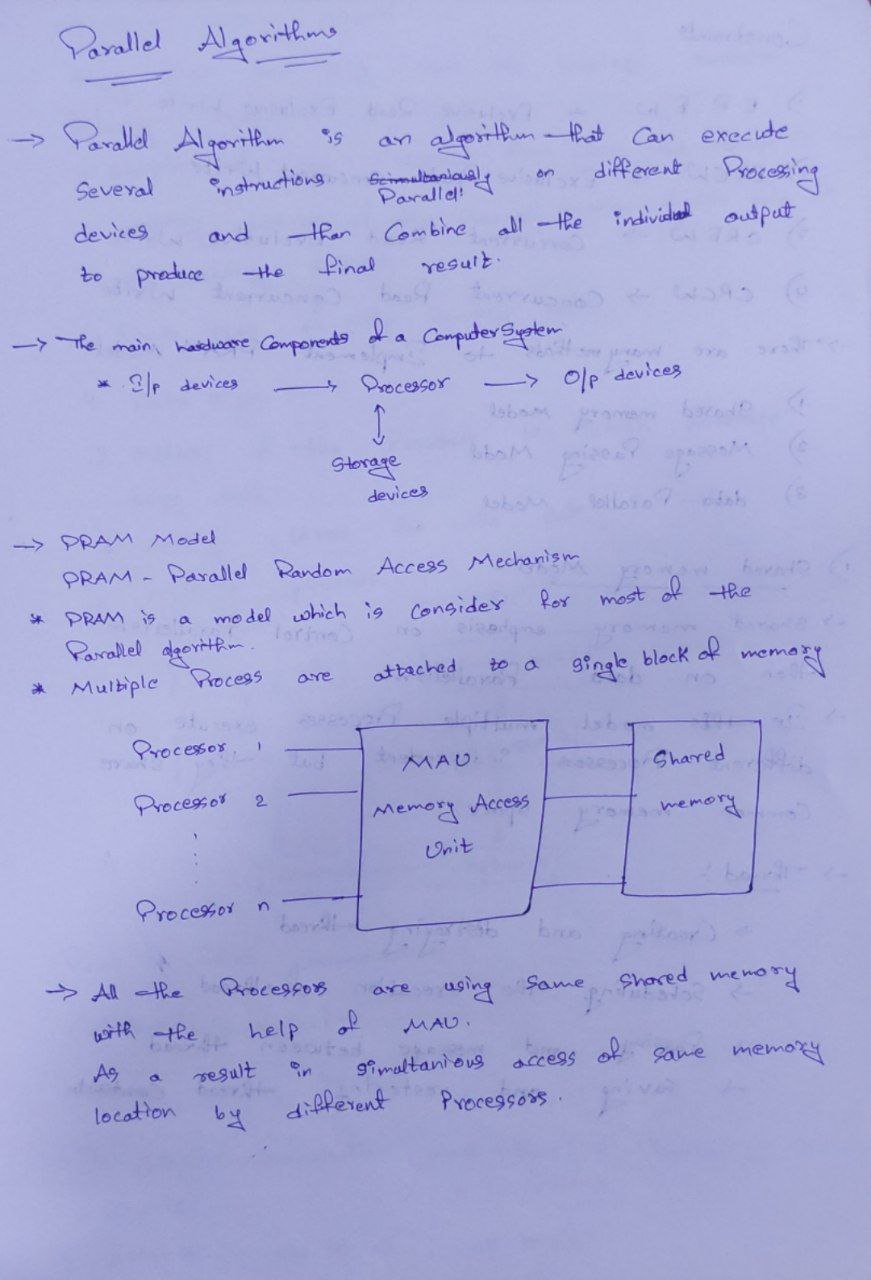 Parallel Algorithms
→ Parallel Algorithm is an algorithm that can execute
Several instructions Scimultaniously Parallel! on different Processing
devices and then Combine all the individual output
to produce the final result.
→ The main, hardware Components of a Computer System
* I/p devices → Processor → O/p devices
↕
Storage
devices
→ PRAM Model
PRAM - Parallel Random Access Mechanism
* PRAM is a model which is Consider for most of the
Parallel algorithm.
* Multiple Process are attached to a single block of memory
Processor 1
Processor 2
Processor n
MAU
Memory Access
Unit
Shared
memory
→ All the Processors are using Same Shared memory
with the help of MAU.
As a result in simultanious access of same memory
location by different Processors.